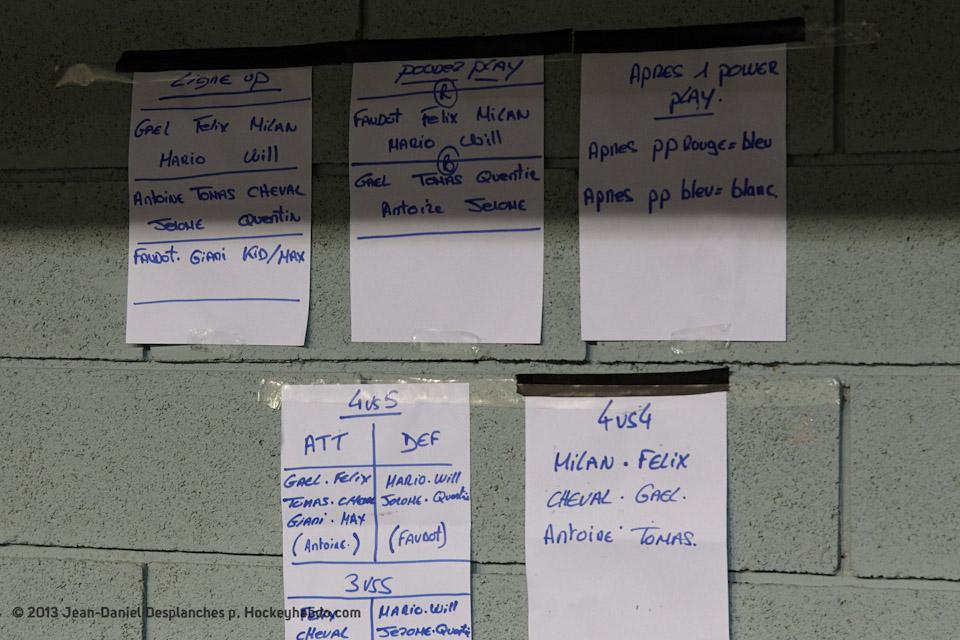 Ligne up
GAEL Felix MilAN
MARIO Will
Antoine TOMAS CHEVAL
JEROME QUENTIN
FAUDOT. GIANI KiD/MAX
POWER PLAY
R
FAUDOT Felix MilAN
MARIO Will
B
GAEL TOMAS Quentin
Antoine JEROME
APRES 1 POWER
PLAY.
APRES PP ROUGE = bleu
APRES PP bleu = blanc.
4vs5
ATT DEF
GAEL. FELIX MARIO. Will
TOMAS. CHEVAL JEROME. Quentin
GIANI. MAX
(Antoine.) (FAUDOT)
3vs5
FELIX MARIO. Will
CHEVAL JEROME. Quentin
4vs4
MILAN. FELIX
CHEVAL. GAEL.
Antoine TOMAS.
© 2013 Jean-Daniel Desplanches p. Hockeyhebdo.com